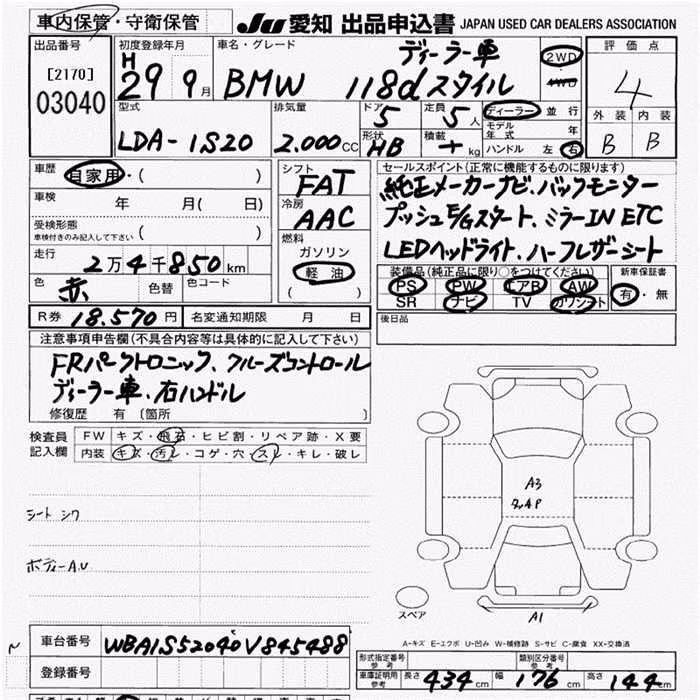 車内保管・守衛保管 JU 愛知 出品申込書 JAPAN USED CAR DEALERS ASSOCIATION
出品番号 初度登録年月 車名・グレード ディーラー車 2WD 評価点
[2170] H 29 9月 BMW 118d スタイル 4WD 4
03040 型式 排気量 ドア 5 定員 5人 ディーラー 並行 外装 内装
モデル年式 年
LDA-1S20 2.000cc 形状 HB 積載 kg ハンドル 左 右 B B
車歴 自家用・( ) シフト FAT セールスポイント(正常に機能するものに限ります)
車検 年 月( 日) 冷房 AAC 純正メーカーナビ、バックモニター
受検形態 車検付きのみ記入して下さい ( ) プッシュE/Gスタート、ミラーIN ETC
燃料 ガソリン LEDヘッドライト、ハーフレザーシート
走行 2万4千850km 軽油 装備品(純正品に限り○をつけてください) 新車保証書
色 赤 色替 色コード ( ) PS PW エアB AW 有・無
SR ナビ TV カワシート
R券 18.570円 名変通知期限 月 日 後日品
注意事項申告欄(不具合内容等は具体的に記入して下さい)
FRパークトロニック、クルーズコントロール
ディーラー車、右ハンドル
修復歴 有 〔箇所 〕
検査員記入欄 FW キズ・飛石・ヒビ割・リペア跡・X要
内装 キズ・汚レ・コゲ・穴・スレ・キレ・破レ
A3
シート シワ
ボディーA.U
スペア
A1
A-キズ E-エクボ U-凹み W-補修跡 S-サビ C-腐食 XX-交換済
車台番号 WBA1S52040V845488
形式指定番号 参考 類別区分番号 参考
登録番号 車庫証明用 参考 長さ 434cm 幅 176cm 高さ 144cm